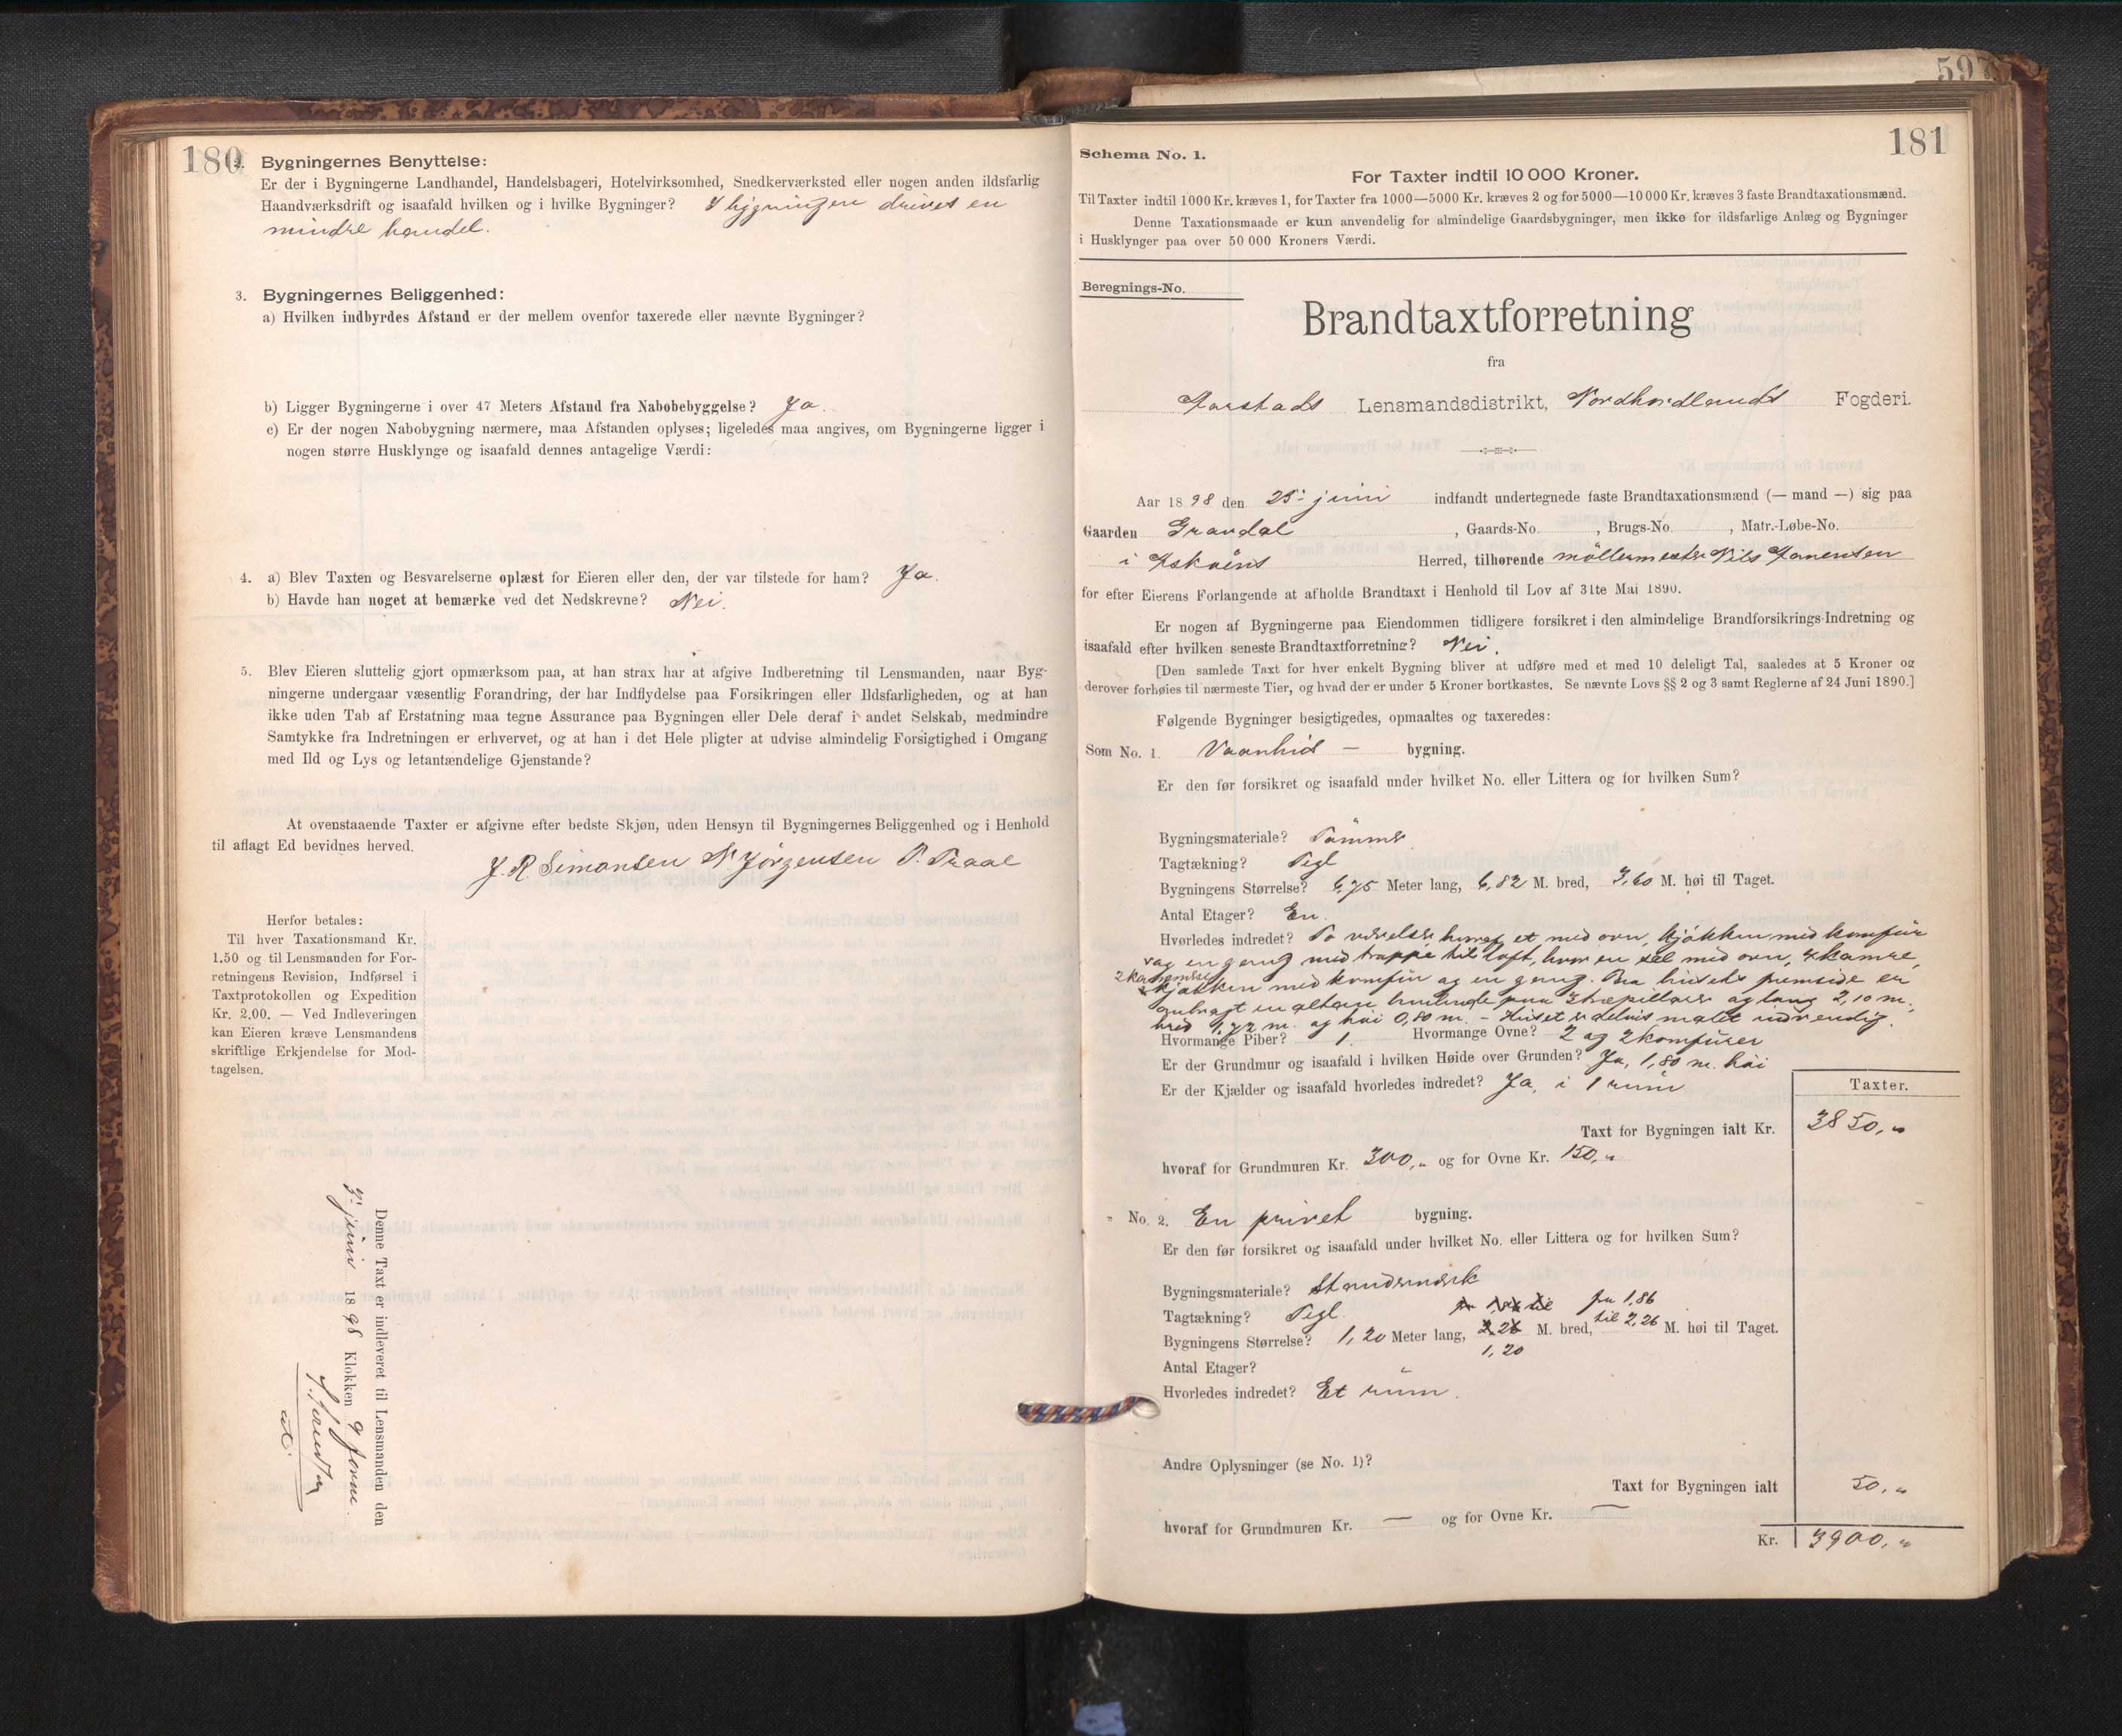 180
2. Bygningernes Benyttelse:
Er der i Bygningerne Landhandel, Handelsbageri, Hotelvirksomhed, Snedkerværksted eller nogen anden ildsfarlig
Haandværksdrift og isaafald hvilken og i hvilke Bygninger? I bygningen drives en
mindre handel.
3. Bygningernes Beliggenhed:
a) Hvilken indbyrdes Afstand er der mellem ovenfor taxerede eller nævnte Bygninger?
b) Ligger Bygningerne i over 47 Meters Afstand fra Nabobebyggelse? Ja.
c) Er der nogen Nabobygning nærmere, maa Afstanden oplyses; ligeledes maa angives, om Bygningerne ligger i
nogen større Husklynge og isaafald dennes antagelige Værdi:
4. a) Blev Taxten og Besvarelserne oplæst for Eieren eller den, der var tilstede for ham? Ja.
b) Havde han noget at bemærke ved det Nedskrevne? Nei.
5. Blev Eieren sluttelig gjort opmærksom paa, at han strax har at afgive Indberetning til Lensmanden, naar Byg-
ningerne undergaar væsentlig Forandring, der har Indflydelse paa Forsikringen eller Ildsfarligheden, og at han
ikke uden Tab af Erstatning maa tegne Assurance paa Bygningen eller Dele deraf i andet Selskab, medmindre
Samtykke fra Indretningen er erhvervet, og at han i det Hele pligter at udvise almindelig Forsigtighed i Omgang
med Ild og Lys og letantændelige Gjenstande?
At ovenstaaende Taxter er afgivne efter bedste Skjøn, uden Hensyn til Bygningernes Beliggenhed og i Henhold
til aflagt Ed bevidnes herved.
J. R. Simonsen N. Jörgensen P. Traae
Herfor betales:
Til hver Taxationsmand Kr.
1.50 og til Lensmanden for For-
retningens Revision, Indførsel i
Taxtprotokollen og Expedition
Kr. 2.00. — Ved Indleveringen
kan Eieren kræve Lensmandens
skriftlige Erkjendelse for Mod-
tagelsen.
Denne Taxt er indleveret til Lensmanden den
juni 1898 Klokken 9 Form.
181
Schema No. 1.
For Taxter indtil 10 000 Kroner.
Til Taxter indtil 1000 Kr. kræves 1, for Taxter fra 1000—5000 Kr. kræves 2 og for 5000—10 000 Kr. kræves 3 faste Brandtaxationsmænd.
Denne Taxationsmaade er kun anvendelig for almindelige Gaardsbygninger, men ikke for ildsfarlige Anlæg og Bygninger
i Husklynger paa over 50 000 Kroners Værdi.
Beregnings-No.
Brandtaxtforretning
fra
Aarstads Lensmandsdistrikt, Nordhordlands Fogderi.
Aar 1898 den 25' juni indfandt undertegnede faste Brandtaxationsmænd (— mand —) sig paa
Gaarden Gravdal, Gaards-No. , Brugs-No. , Matr.-Løbe-No.
i Askøens Herred, tilhørende möllermester Nils
for efter Eierens Forlangende at afholde Brandtaxt i Henhold til Lov af 31te Mai 1890.
Er nogen af Bygningerne paa Eiendommen tidligere forsikret i den almindelige Brandforsikrings-Indretning og
isaafald efter hvilken seneste Brandtaxtforretning? Nei.
[Den samlede Taxt for hver enkelt Bygning bliver at udføre med et med 10 deleligt Tal, saaledes at 5 Kroner og
derover forhøies til nærmeste Tier, og hvad der er under 5 Kroner bortkastes. Se nævnte Lovs §§ 2 og 3 samt Reglerne af 24 Juni 1890.]
Følgende Bygninger besigtigedes, opmaaltes og taxeredes:
Som No. 1. Vaanhus — bygning.
Er den før forsikret og isaafald under hvilket No. eller Littera og for hvilken Sum?
Bygningsmateriale? Tömmer.
Tagtækning? Tegl
Bygningens Størrelse? 6,75 Meter lang, 6,82 M. bred, 3,60 M. høi til Taget.
Antal Etager? En.
Hvorledes indredet? To værelser, hvoraf et med ovn, kjökken med komfür
og en gang med trappe til loft, hvor en sal med ovn,
2 kamerser kjökken med komfür og en gang. Paa husets fremside er
anbragt en altan hvilende paa 3 træpillarer og lang 2,10 m.
bred 1,72 m. og höi 0,80 m. – Huset er delvis malet indvendig.
Hvormange Piber? 1 Hvormange Ovne? 2 og 2 komfürer
Er der Grundmur og isaafald i hvilken Høide over Grunden? Ja, 1,80 m. höi
Er der Kjælder og isaafald hvorledes indredet? Ja, i 1 rum
Taxter.
Taxt for Bygningen ialt Kr. 3850,"
hvoraf for Grundmuren Kr. 300," og for Ovne Kr. 150,"
" No. 2. En privet bygning.
Er den før forsikret og isaafald under hvilket No. eller Littera og for hvilken Sum?
Bygningsmateriale? Standerværk
Tagtækning? Tegl. fra 1,86
Bygningens Størrelse? 1,20 Meter lang, 2,26 M. bred, til 2,26 M. høi til Taget.
1,20
Antal Etager?
Hvorledes indredet? Et rum.
Andre Oplysninger (se No. 1)?
Taxt for Bygningen ialt 50,"
hvoraf for Grundmuren Kr. — og for Ovne Kr. —
Kr. 3900,"
597